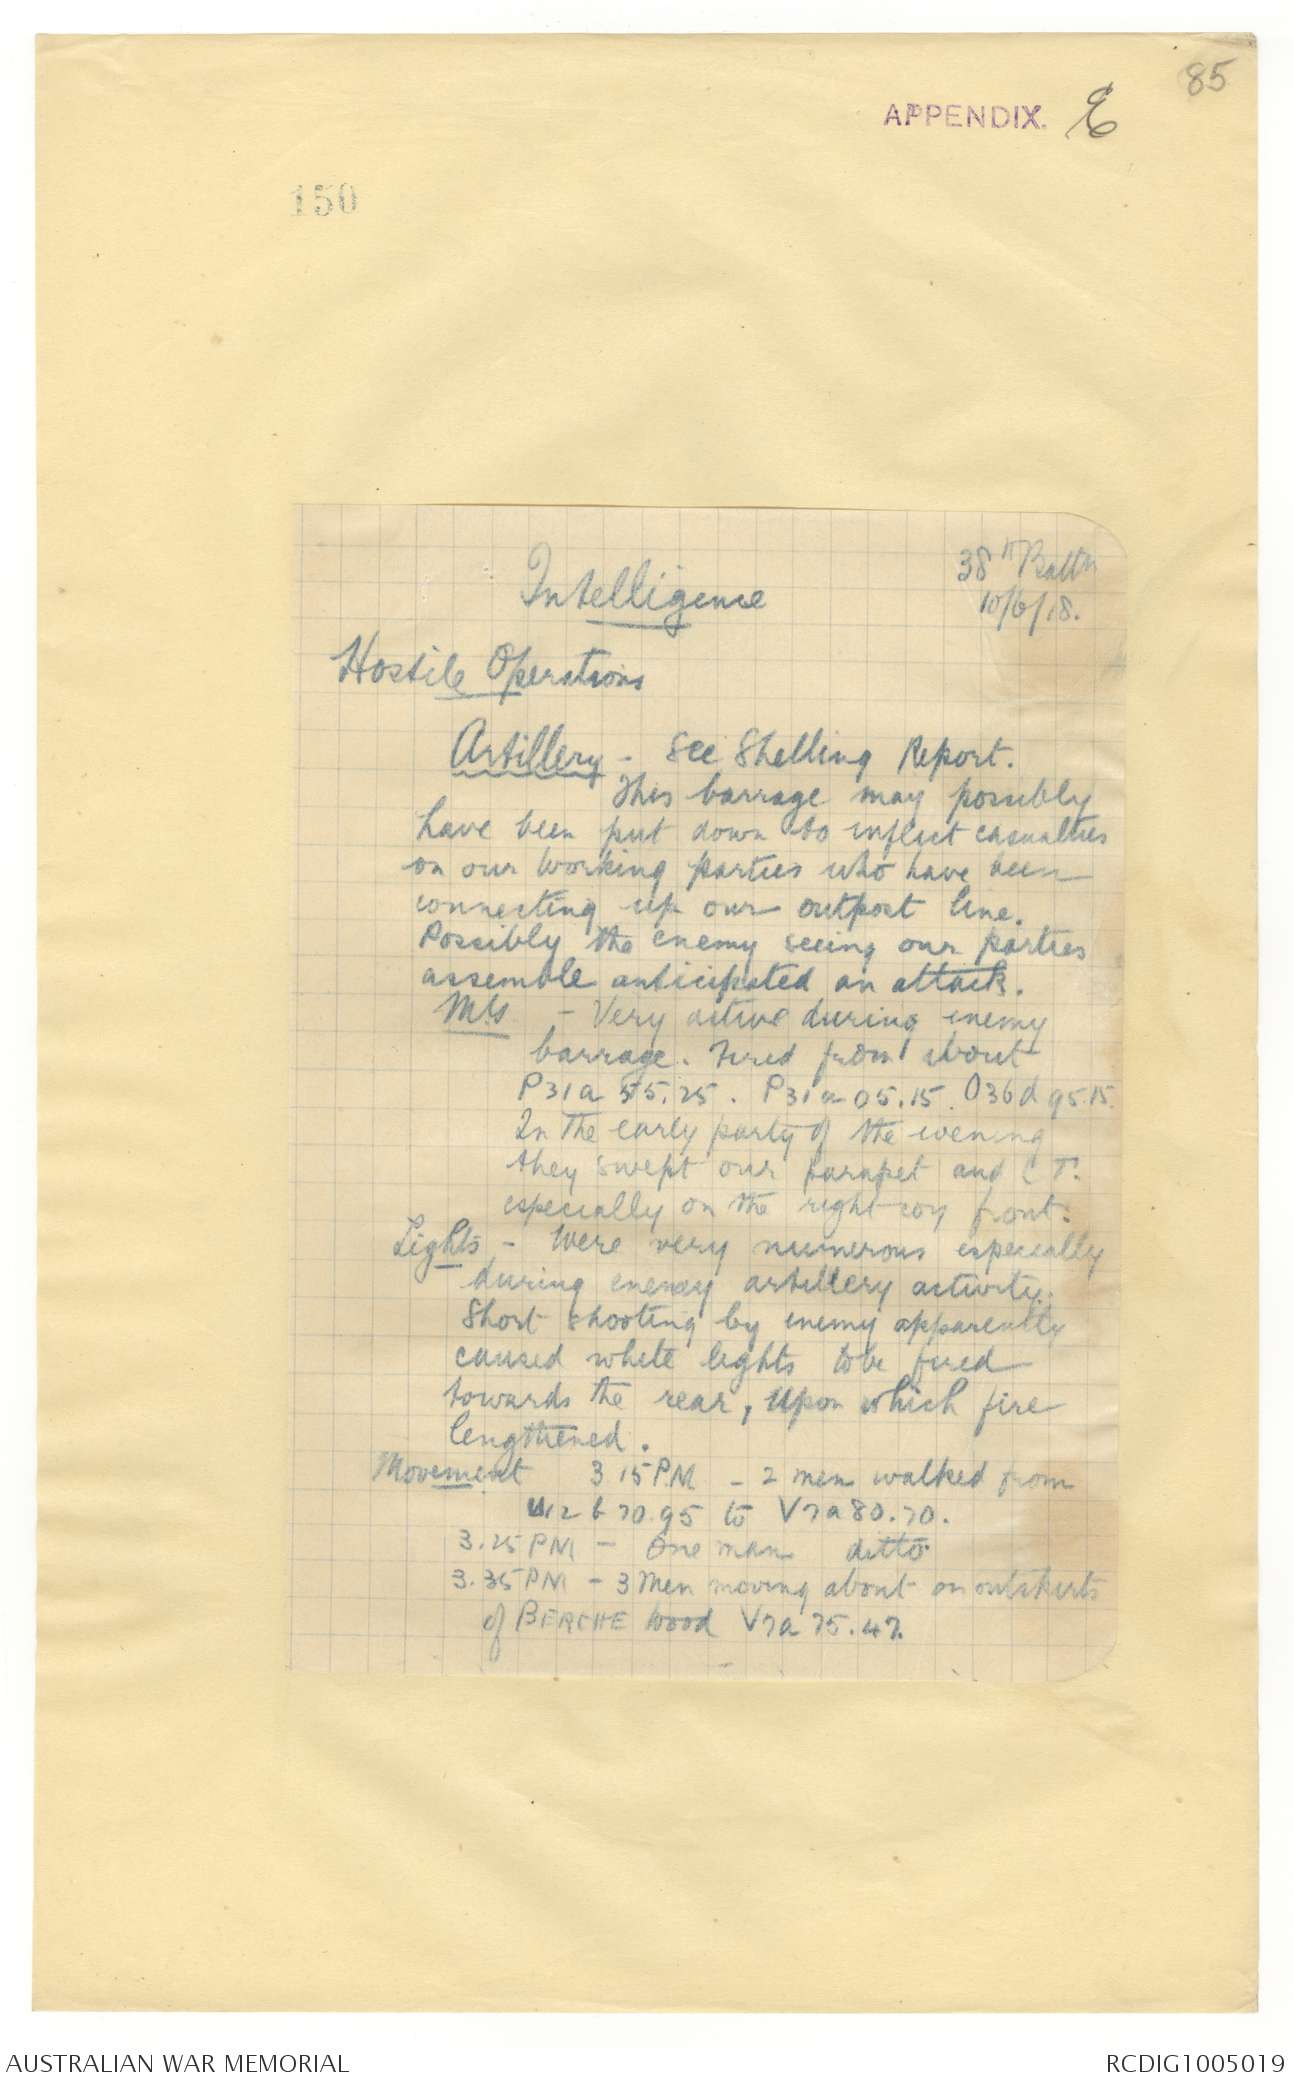 85
APPENDIX. E
150
38th Battn
10/6/18.
Intelligence
Hostile Operations
Artillery - See Shelling Report.
This barrage may possibly
have been put down to inflict casualties
on our working parties who have been
connecting up our outpost line.
Possibly the enemy seeing our parties
assemble anticipated an attack.
MGs - Very active during enemy
barrage. Fired from about
P31a 55.25. P31a 05.15. O36d 95.15.
In the early party of the evening
they swept our parapet and C.T.
especially on the right coy front.
Lights - Were very numerous especially
during enemy artillery activity.
Short shooting by enemy apparently
caused white lights to be fired
towards the rear, upon which fire
lengthened.
Movement 3 15 PM - 2 men walked from
U12 b 70.95 to V7a 80.70.
3.25 PM - One man ditto
3.35 PM - 3 Men moving about on outskirts
of BERCHE wood V7a 75.47.
AUSTRALIAN WAR MEMORIAL
RCDIG1005019